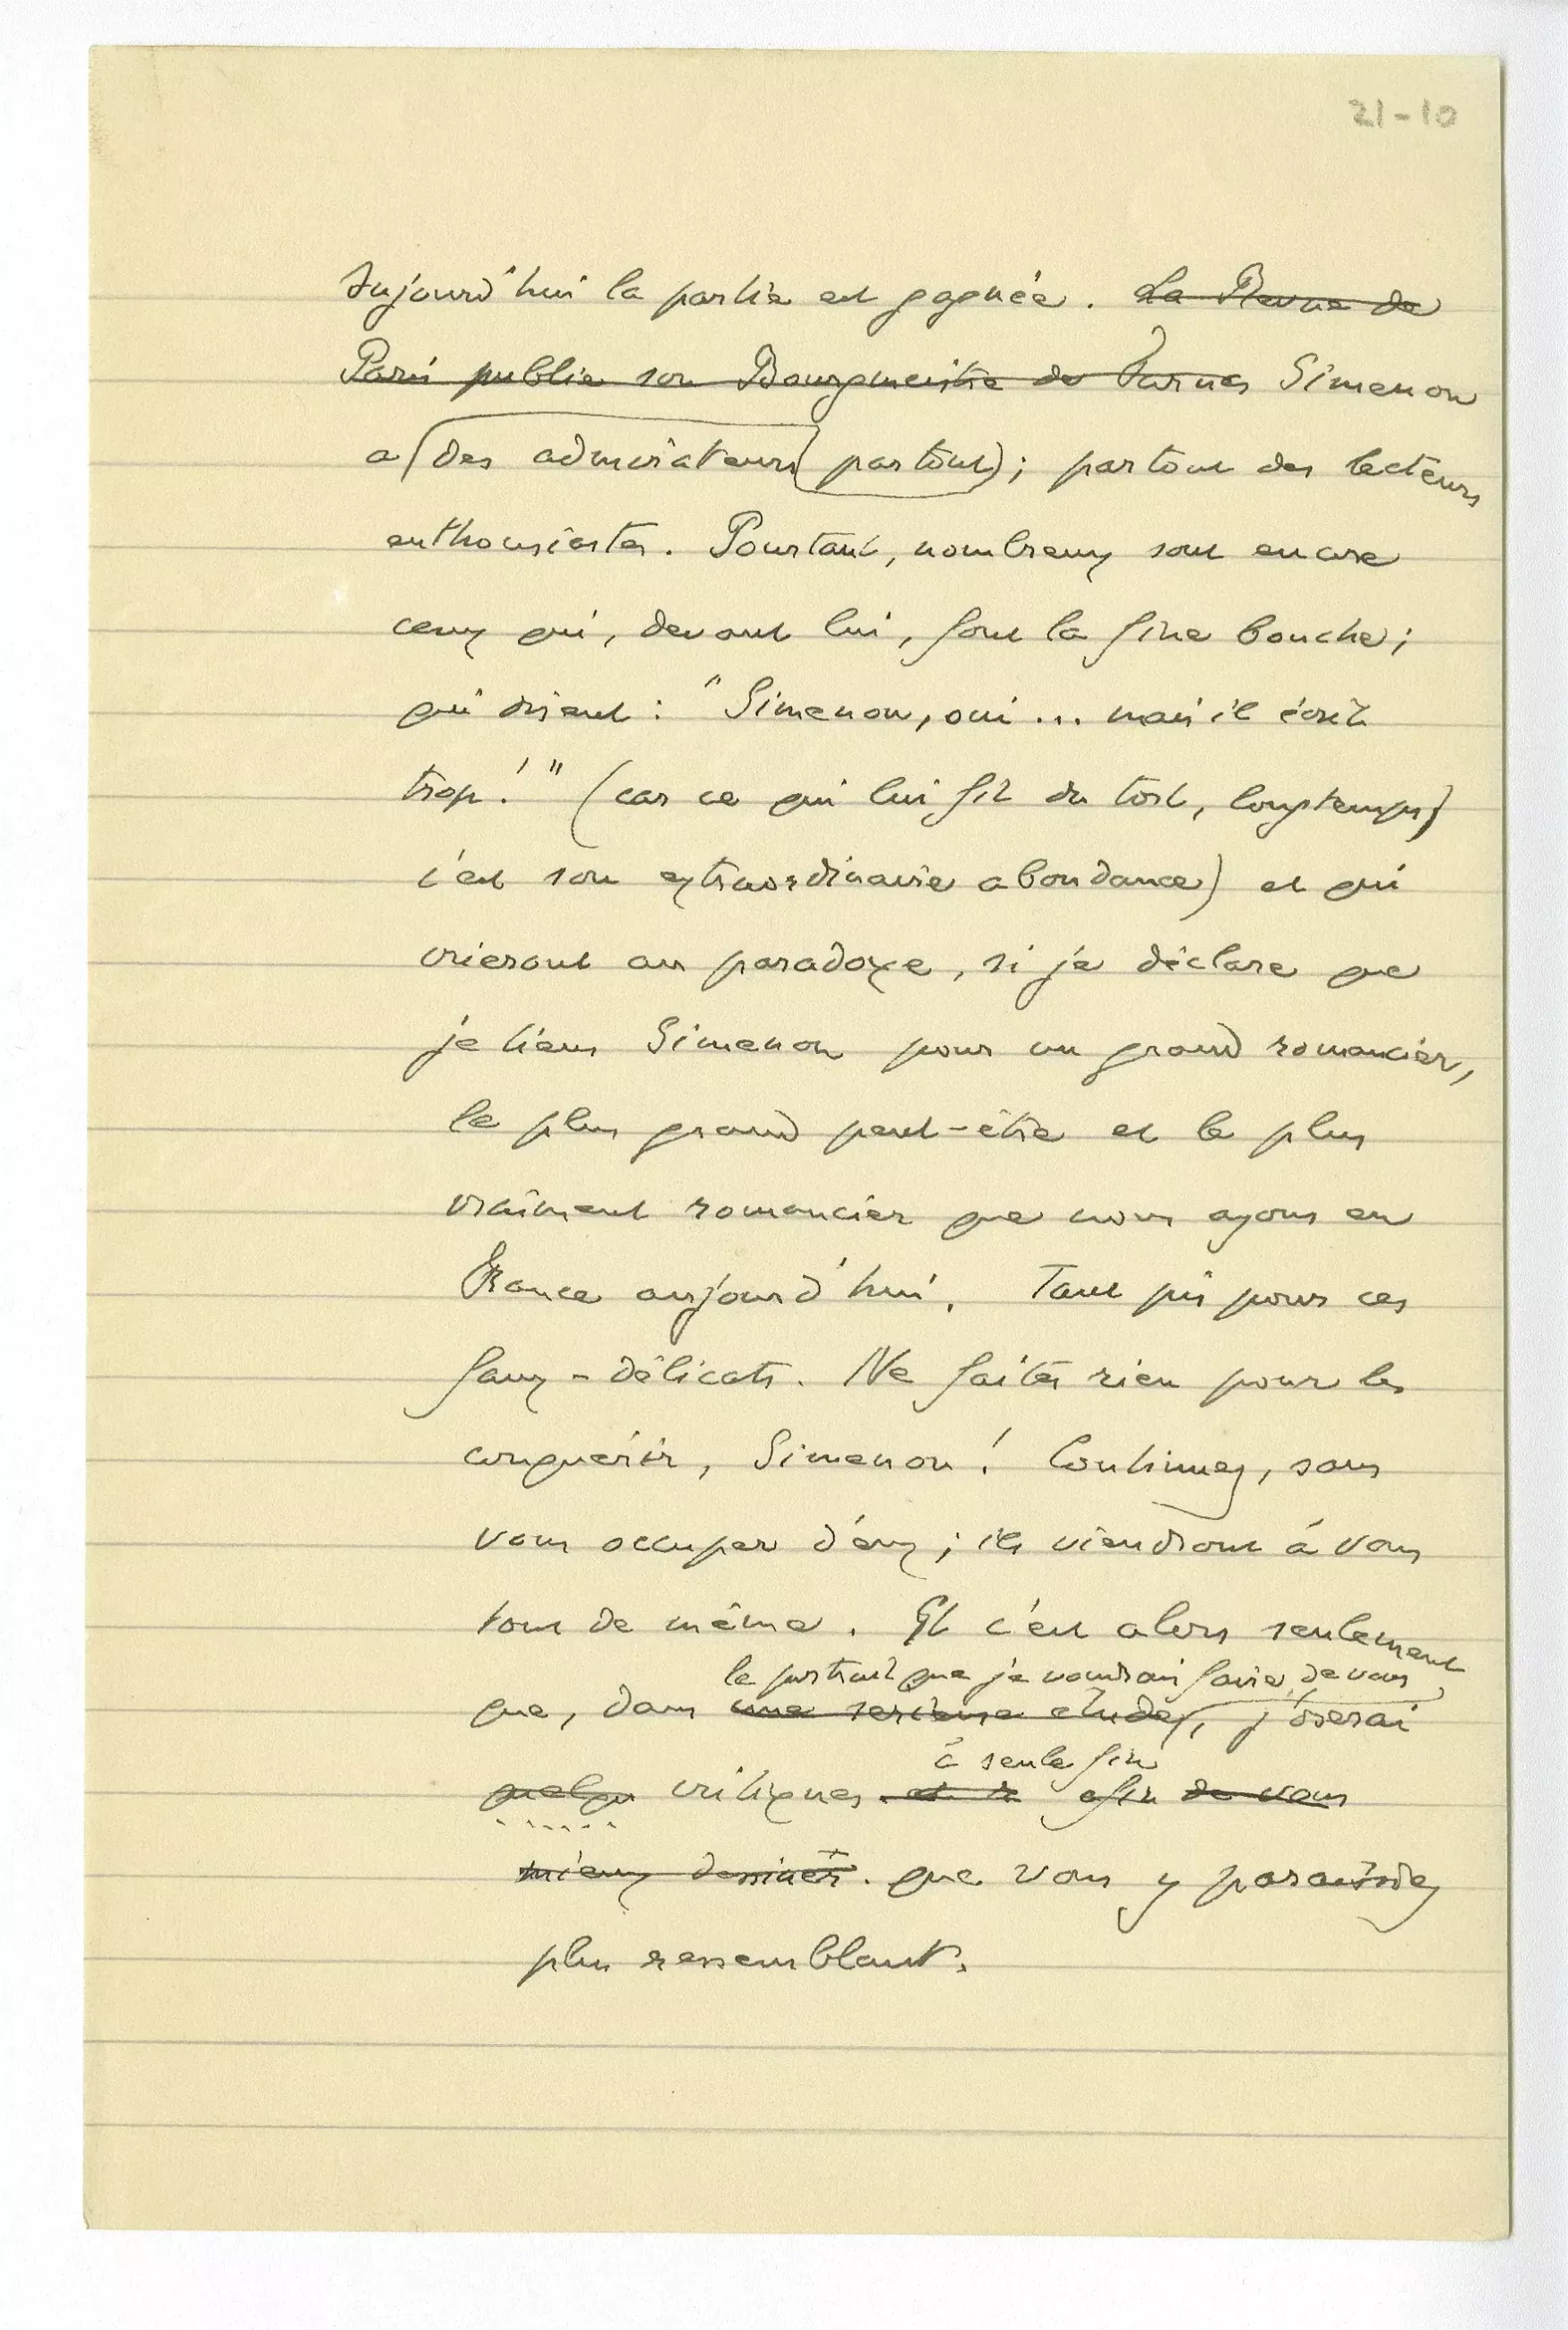 21-10
Aujourd'hui la partie est gagnée. La Revue de
Paris publie son Bourgmeistre de Furnes Simenon
a (des admirateurs (partout); partout des lecteurs
enthousiastes. Pourtant, nombreux sont encore
ceux qui, devant lui, font la fine bouche;
qui disent : "Simenon, oui ... mais il écrit
trop !" (car ce qui lui fit du tort, longtemps,
c'est son extraordinaire abondance) et qui
crieront au paradoxe, si je déclare que
je tiens Simenon pour un grand romancier,
le plus grand peut-être et le plus
vraiment romancier que nous ayons en
France aujourd'hui. Tant pis pour ces
faux-délicats. Ne faites rien pour les
conquérir, Simenon ! Continuez, sans
vous occuper d'eux ; ils viendront à vous
tout de même. Et c'est alors seulement
le portrait que je voudrais faire de vous,
que, dans une serieuse etude, j'oserai
à seule fin
quelqu critiques et de afin de vous
mieux dessiner. que vous y paraissiez
plus ressemblant.